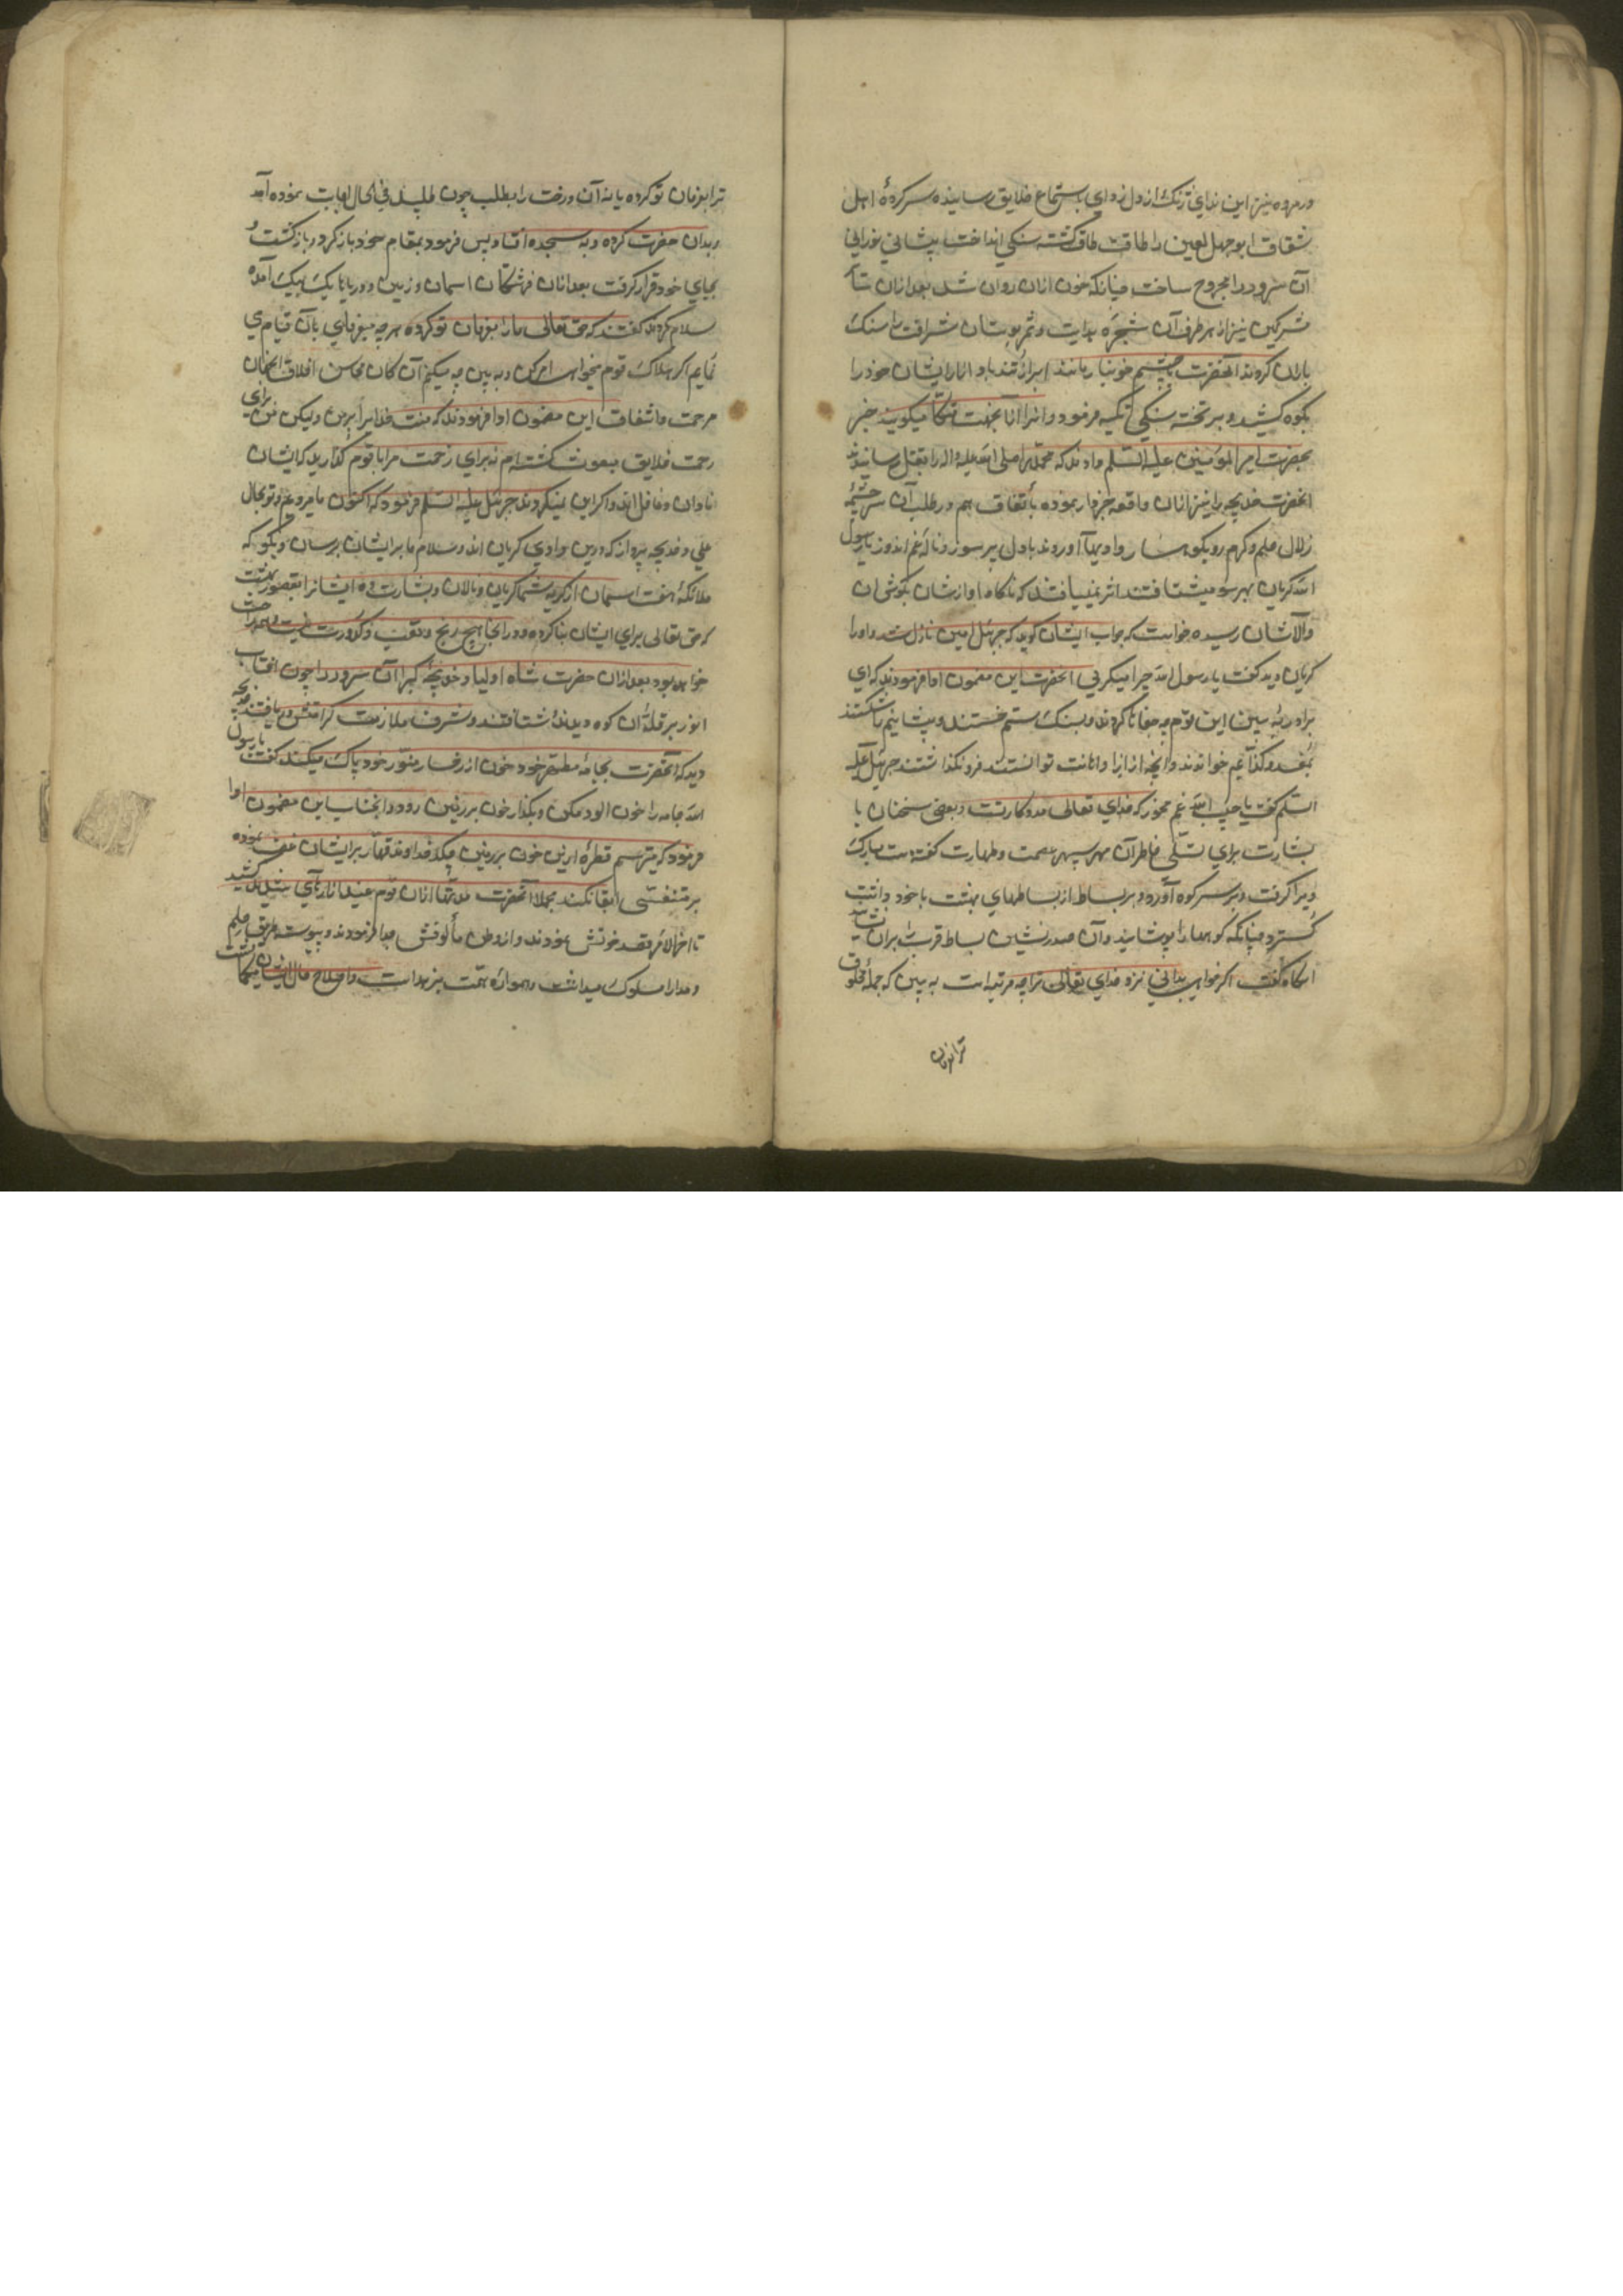 در مروه نیز این ندای زنک از دل زدای باستماع خلایق رسانیده سرکردهٔ اهل
شقاق ابوجهل لعین را طاقت طاق گشته سنکی انداخت پیشانی نورانی
آن سرور را مجروح ساخت چنانکه خون ازان روان شد بعد ازان سایر
مشرکین نیز از هر طرف آن شجرهٔ هدایت و ثمر بوستان شرافت را سنک
باران کردند آنحضرت با چشم خونبار مانند ابر از تندباد آزار ایشان خود را
بکوه کشید و بر تخته سنکی تکیه فرمود و انرا الآن بجهت متکا میکویند خبر
بحضرت امیر المؤمنین علیه السلم دادند که محمد را صلی الله علیه و اله را بقتل رسانیدند
انحضرت خدیجه را نیز ازان واقعه خبردار نموده باتفاق هم در طلب آن سرچشمهٔ
زلال حلم و کرم رو بکوهسار وادیها آوردند با دل پر سوز و نالهٔ غم اندوز یا رسول
الله کریان بهر سو میشتافتند اثر نمییافتند که ناکاه اوازشان بکوش ان
والاشان رسیده خواست که جواب ایشان کوید که جبرئیل امین نازل شد و او را
کریان دید کفت یا رسول الله چرا میکریی انحضرت این مضمون ادا فرمودند که ای
برادر به بین این قوم چه جفاها کردند و بسنک ستم خستند و پیشانیم را شکستند
و کذابم خواندند و آنچه از ایذا و اهانت توانستند فرو نکذاشتند جبرئیل علیه
السلم کفت یا حبیب الله غم مخور که خدای تعالی مددکار تست و بعضی سخنان با
بشارت برای تسلی خاطر آن مهر سپهر عصمت و طهارت کفته دست مبارک
ویرا کرفت و بر سر کوه آورد و بر بساط از بساطهای بهشت با خود داشت
کسترد چنانکه کوهها را پوشانید و آن صدرنشین بساط قربت را بران نشانید
انکاه کفت اکر خواهی بدانی نزد خدای تعالی ترا چه مرتبه است به بین که جملهٔ مخلوق
ترا بفرمان
ترا بفرمان تو کرده یا نه آن درخت را بطلب چون طلبید فی الحال اجابت نموده آمد
بدان حضرت کرده و به سجده افتاد پس فرمود بمقام خود باز کرد و باز کشت و
بجای خود قرار کرفت بعد ازان فرشتکان اسمان و زمین و دریاها یک بیک آمده
سلام کردند کفتند که حق تعالی ما را بفرمان تو کرده هر چه میفرمای بآن قیام می
نمایم اکر هلاک قوم میخواهی امر کن و به بین چه میکنیم آن کان محاسن اخلاق از کمال
مرحمت و اشفاق این مضمون ادا فرمودند که منت خدایرا بر من ولیکن من برای
رحمت خلایق مبعوث کشته‌ام نه برای زحمت مرا با قوم کذارید که ایشان
نادان و غافل‌اند و اکر این نمیکردند جبرئیل علیه السلم فرمود که اکنون ما میرویم و تو بحال
علی و خدیجه پرداز که درین وادی کریان اند و سلام ما بر ایشان برسان و بکو که
ملائکهٔ هفت اسمان از کریهٔ شما کریان و نالان و بشارت ده ایشانرا بقصور بهشت
که حق تعالی برای ایشان بنا کرده و در انجا هیچ رنج و تعب و کدورت نیست و همه راحت
خواهد بود بعد ازان حضرت شاه اولیا و خدیجهٔ کبرا آن سرور را چون افتاب
انور بر قلهٔ ان کوه دیدند شتافتند و شرف ملازمت کرامتش دریافتند خدیجه
دید که آنحضرت بجامهٔ مطهر خود خون از رخسار منور خود پاک میکند کفت یا رسول
الله جامه را خون الود مکن و بکذار خون بر زمین رود و انجناب این مضمون ادا
فرمود که میترسم قطره از این خون بر زمین چکد خداوند قهار بر ایشان غضب نموده
بر متنفسی ابقا نکند مجملا آنحضرت مدتها ازان قوم عنید ازارهای شدید کشید
تا اخر الامر قصد خونش نمودند و از وطن مألوفش جدا فرمودند و پیوسته طریق حلم
و مدارا مسلوک میداشت و همواره همت بر هدایت و اصلاح حال ایشان میکماشت